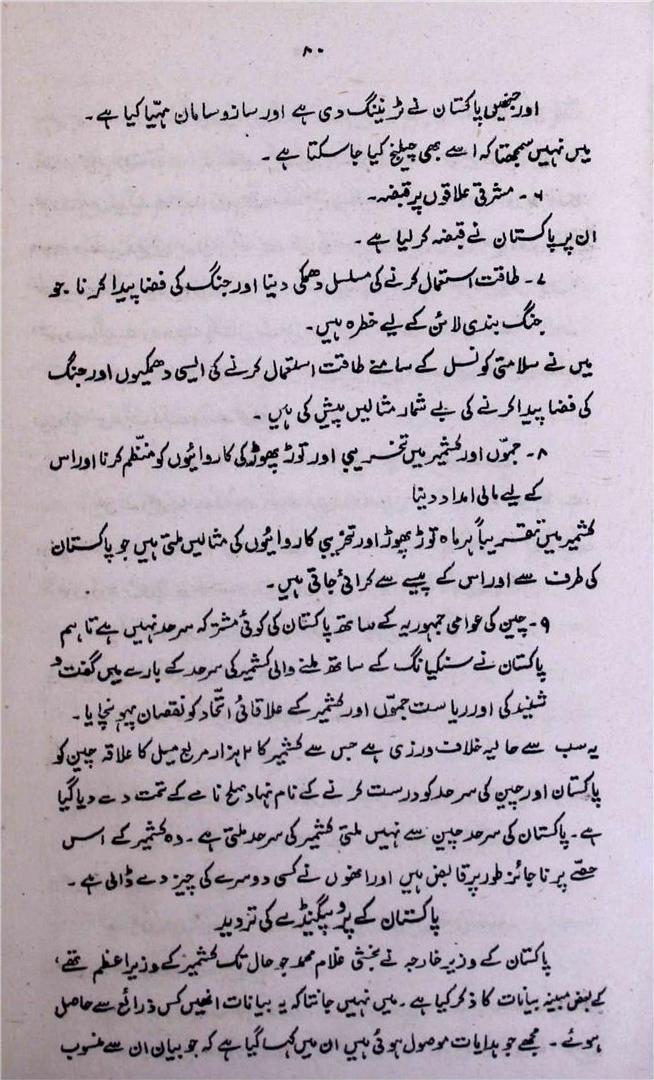 ۸۰
اور جنھیں پاکستان نے ٹریننگ دی ہے اور ساز و سامان مہیّا کیا ہے۔
میں نہیں سمجھتا کہ اسے بھی چیلنج کیا جا سکتا ہے۔
۶۔ مشرقی علاقوں پر قبضہ۔
ان پر پاکستان نے قبضہ کر لیا ہے۔
۷۔ طاقت استعمال کرنے کی مسلسل دھمکی دینا اور جنگ کی فضا پیدا کرنا جو
جنگ بندی لائن کے لیے خطرہ ہیں۔
میں نے سلامتی کونسل کے سامنے طاقت استعمال کرنے کی ایسی دھمکیوں اور جنگ
کی فضا پیدا کرنے کی بے شمار مثالیں پیش کی ہیں
۸۔ جموّں اور کشمیر میں تخریبی اور توڑ پھوڑ کی کاروائیوں کو منظّم کرنا اور اس
کے لیے مالی امداد دینا
کشمیر میں تقریباً ہر ماہ توڑ پھوڑ اور تخریبی کاروائیوں کی مثالیں ملتی ہیں جو پاکستان
کی طرف سے اور اس کے پیسے سے کرائی جاتی ہیں۔
۹۔ چین کی عوامی جمہوریہ کے ساتھ پاکستان کی کوئی مشترکہ سرحد نہیں ہے تاہم
پاکستان نے سنکیانگ کے ساتھ ملنے والی کشمیر کی سرحد کے بارے میں گفت و
شنید کی اور ریاست جموّں اور کشمیر کے علاقائی اتّحاد کو نقصان پہونچایا۔
یہ سب سے حالیہ خلاف ورزی ہے جس سے کشمیر کا ۲ ہزار مربع میل کا علاقہ چین کو
پاکستان اور چین کی سرحد کو درست کرنے کے نام نہاد صلح نامے کے تحت دے دیا گیا
ہے۔ پاکستان کی سرحد چین سے نہیں ملتی کشمیر کی سرحد ملتی ہے۔ وہ کشمیر کے اس
حصّے پر ناجائز طور پر قابض ہیں اور انھوں نے کسی دوسرے کی چیز دے ڈالی ہے۔
پاکستان کے پروپیگنڈے کی تردید
پاکستان کے وزیر خارجہ نے بخشی غلام محمد جو حال تک کشمیر کے وزیر اعظم تھے،
کے بعض مبینہ بیانات کا ذکر کیا ہے۔ میں نہیں جانتا کہ یہ بیانات انھیں کس ذرائع سے حاصل
ہوئے۔ مجھے جو ہدایات موصول ہوئی ہیں ان میں کہا گیا ہے کہ جو بیان ان سے منسوب